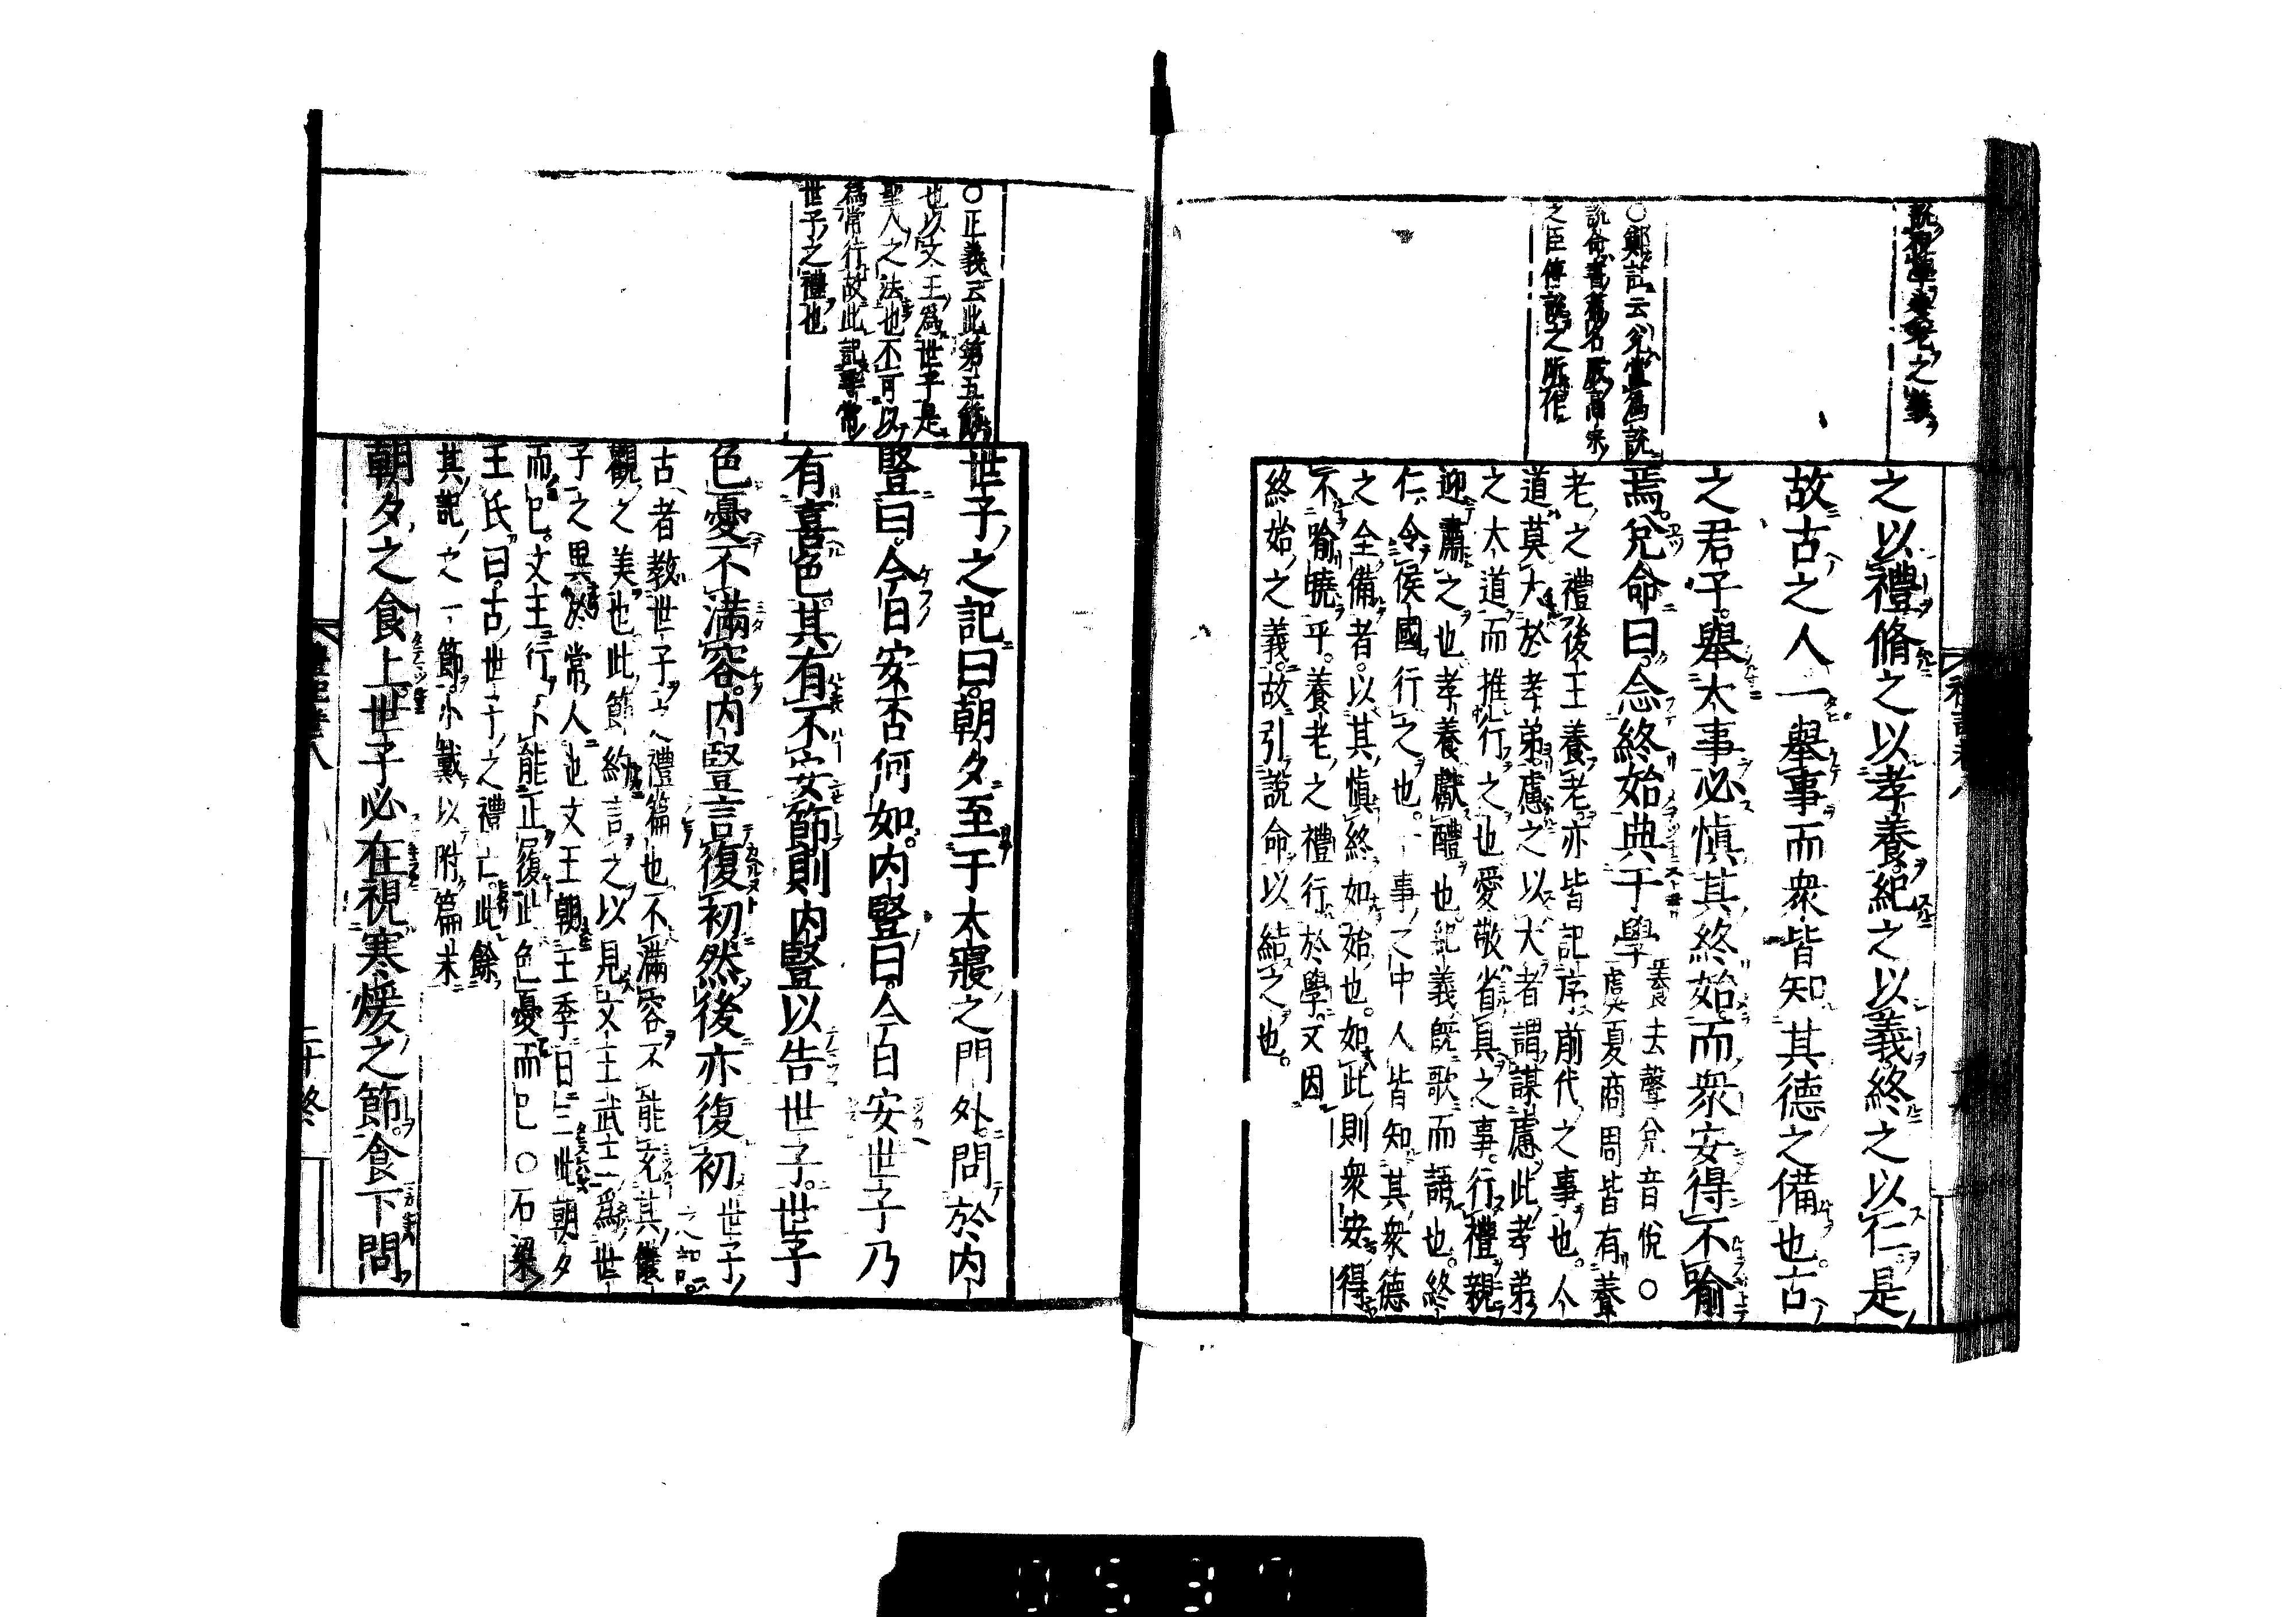 之以禮脩之以孝養紀之以義終之以仁是
故古之人一舉事而衆皆知其德之備也古
之君子舉大事必愼其終始而衆安得不喻
焉兌命曰念終始典于學
養去聲兌音悅○
虞夏商周皆有養
老之禮後王養老亦皆記序前代之事也人
道莫大於孝弟慮之以大者謂謀慮此孝弟
之大道而推行之也愛敬省具之事行禮親
迎肅之也孝養獻醴也紀義旣歌而語也終
仁令侯國行之也一事之中人皆知其衆德
之全備者以其愼終如始也如此則衆安得
不喻曉乎養老之禮行於學又因
終始之義故引說命以結之也
○鄭註云兌當爲說
說命書篇名殷高宗
之臣傅說之所作
世子之記曰朝夕至于大寢之門外問於內
豎曰今日安否何如內豎曰今日安世子乃
有喜色其有不安節則內豎以告世子世子
色憂不滿容內豎言復初然後亦復初
世子
之記
古者教世子之禮篇也不滿容不能充其儀
觀之美也此節約言之以見文王武王爲世
子之異於常人也文王朝王季日三此朝夕
而已文王行不能正履此色憂而已○石梁
王氏曰古世子之禮亡此餘
其記之一節小戴以附篇末
朝夕之食上世子必在視寒煖之節食下問
○正義云此第五節
也以文王爲世子是
聖人之法也不可以
爲常行故此記尋常
世子之禮也
二十終
0537